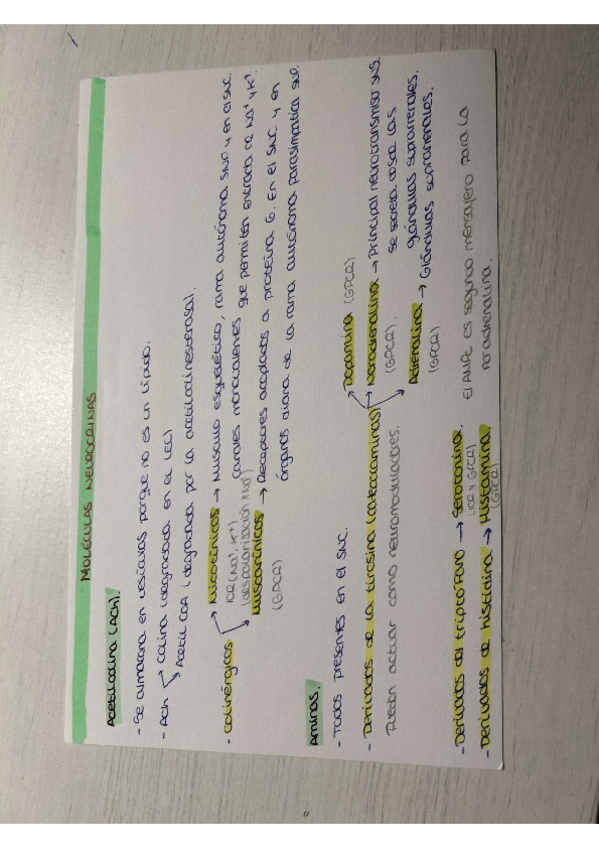 MOLÉCULAS NEUROCRINAS
Acetilcolina (ACh).
- Se almacena en vesículas porque no es un lípido.
- Ach → Colina (degradada en el LEC)
Acetil CoA (degradada por la acetilcolinesterasa).
- Colinérgicos → Nicotínicos → Músculo esquelético, rama autónoma SNP y en el SNC.
IOR (Na⁺, K⁺) Canales monovalentes que permiten entrada de Na⁺ y K⁺.
(despolarización x Na⁺)
Muscarínicos → Receptores acoplados a proteína G. En el SNC y en
(GPCR) órganos diana de la rama autónoma parasimpática SNP.
Aminas.
- Todos presentes en el SNC.
- Derivados de la tirosina (catecolaminas) → Dopamina (GPCR)
Noradrenalina → Principal neurotransmisor SNS.
(GPCR). Se secreta desde las
glándulas suprarrenales.
Adrenalina → Glándulas suprarrenales.
(GPCR)
Pueden actuar como neuromoduladores.
- Derivados del triptófano → Serotonina.
(IOR y GPCR)
- Derivados de histidina → Histamina.
(GPCR)
El AMPc es segundo mensajero para la
noradrenalina.